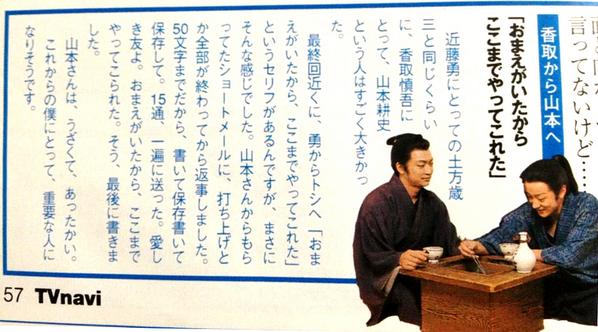 言ってないけど…
香取から山本へ
「おまえがいたから
ここまでやってこれた」
近藤勇にとっての土方歳
三と同じくらい
に、香取慎吾に
とって、山本耕史
という人はすごく大きかっ
た。
最終回近くに、勇からトシへ「おま
えがいたから、ここまでやってこれた」
というセリフがあるんですが、まさに
そんな感じでした。山本さんからもら
ってたショートメールに、打ち上げと
か全部が終わってから返事しました。
50文字までだから、書いて保存書いて
保存して。15通、一遍に送った。愛し
き友よ。おまえがいたから、ここまで
やってこられた。そう、最後に書きま
した。
山本さんは、うざくて、あったかい。
これからの僕にとって、重要な人に
なりそうです。
57 TVnavi